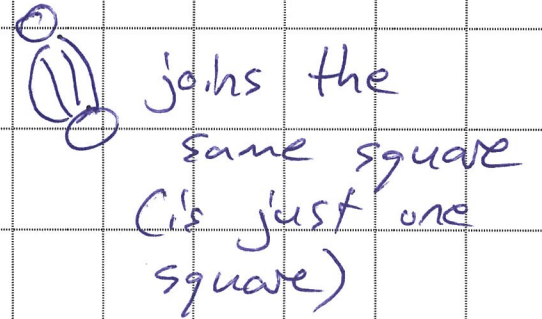 joins the
same square
(is just one
square)